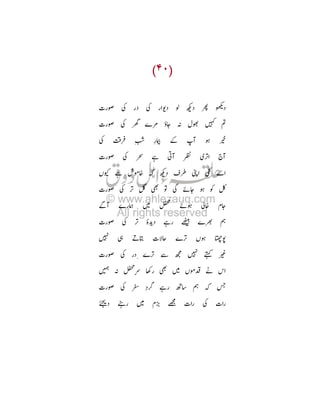 (۴۰)
دیکھو پھر دیکھ لو دیوار کی در کی صورت
تم کہیں بھول نہ جاؤ مرے گھر کی صورت
خیر ہو آپ کے بیمار شب فرقت کی
آج اتری نظر آتی ہے سحر کی صورت
اے کلی اپنی طرف دیکھ خاموش ہے کیوں
کل کو ہو جائے گی تو بھی گل تر کی صورت
© www.ahlezauq.com
جام خالی ہوئے محفل میں ہمارے آگے
All rights reserved
ہم بھرے بیٹھے رہے دیدۂ تر کی صورت
پوچھتا ہوں ترے حالات بتاتے ہی نہیں
غیر کہتے نہیں مجھ سے ترے در کی صورت
اس نے قدموں میں بھی رکھا سر محفل نہ ہمیں
جس کے ہم ساتھ رہے گرد سفر کی صورت
رات کی رات مجھے بزم میں رہنے دیجئے